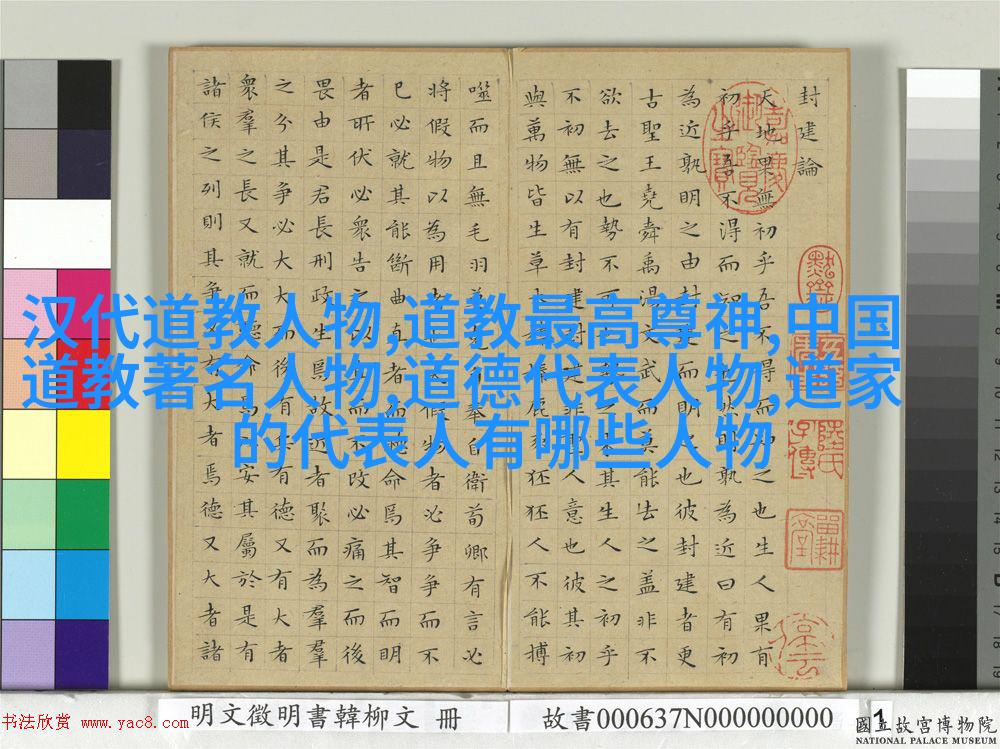 封建論
天地果無初乎吾不得而知之也生人果有
初乎吾不得而知之也然則孰為近曰有初
為近孰明之由封建而明之也彼封建者更
古聖王堯舜禹湯文武而莫能去之蓋非不
欲去之也勢不可也勢之來其生人之初乎
不初無以有封建封建非聖人意也彼其初
與萬物皆生草木榛榛鹿豕狉狉人不能搏
噬而且無毛羽莫克自奉自衛荀卿有言必
將假物以為用者也夫假物者必爭爭而不
已必就其能斷曲直者而聽命焉其智而明
者所伏必衆告之以直而不改必痛之而後
畏由是君長刑政生焉故近者聚而為羣羣
之分其爭必大大而後有兵有德又有大者
衆羣之長又就而聽命焉以安其屬於是有
諸侯之列則其爭又有大者焉德又大者諸
汉代道教人物,道教最高尊神,中国
道教著名人物,道德代表人物,道家
的代表人有哪些人物
明文徵明書韓柳文 冊
故書000637N000000000
1
國立故宮博物院
NATIONAL PALACE MUSEUM
书法欣赏 www.yac8.com